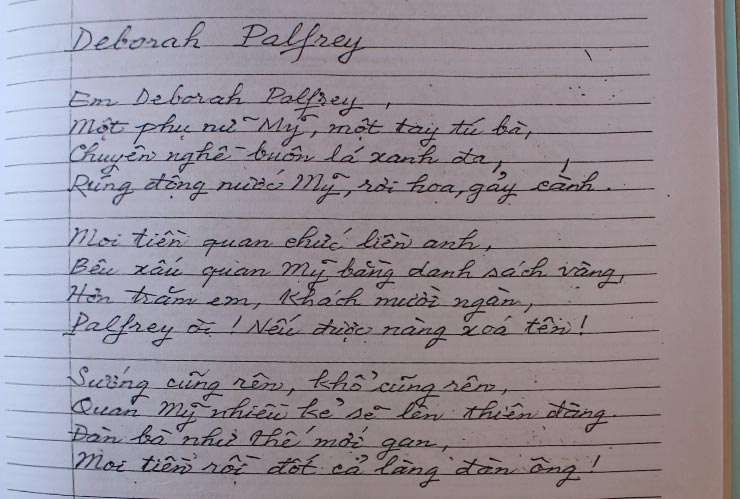 Deborah Palfrey
Em Deborah Palfrey,
Một phụ nữ Mỹ, một tay tú bà,
Chuyên nghề buôn lá xanh đa,
Rúng động nước Mỹ, rơi hoa, gảy cành.
Moi tiền quan chức liền anh,
Bêu xấu quan Mỹ bằng danh sách vàng,
Hơn trăm em, khách mười ngàn,
Palfrey ời! Nếu được nàng xoá tên!
Sướng cũng rên, khổ cũng rên,
Quan Mỹ nhiều kẻ sẽ lên thiên đàng.
Đàn bà như thế mới gan,
Moi tiền rồi đốt cả làng đàn ông!